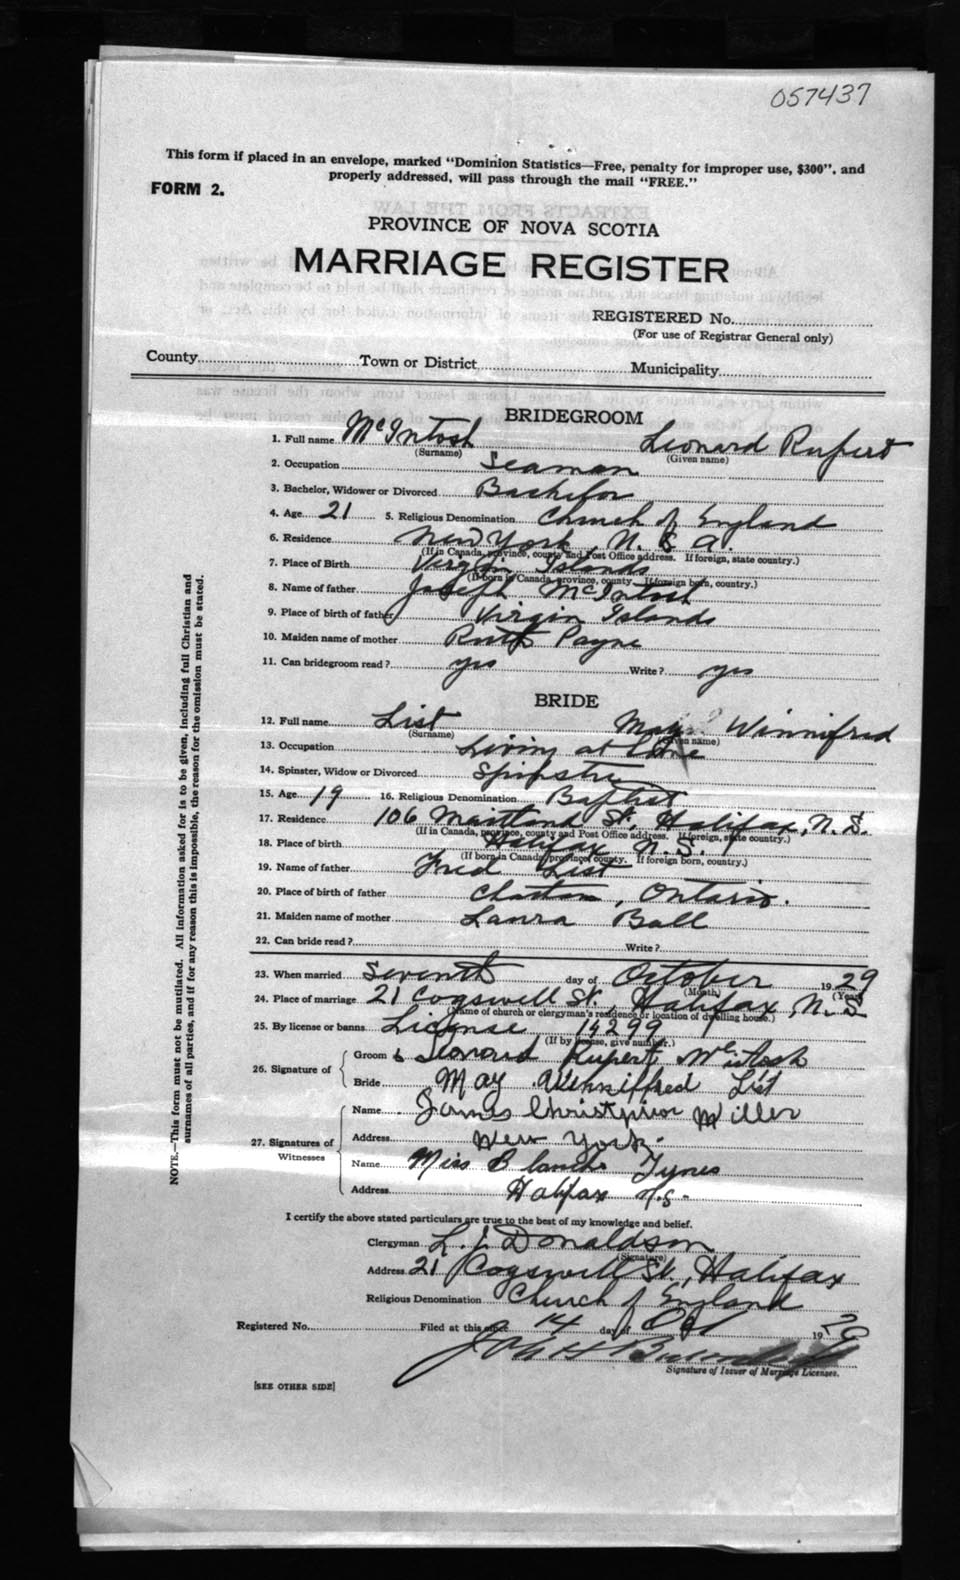 057437
This form if placed in an envelope, marked "Dominion Statistics—Free, penalty for improper use, $300", and
properly addressed, will pass through the mail "FREE."
FORM 2.
PROVINCE OF NOVA SCOTIA
MARRIAGE REGISTER
REGISTERED No.
(For use of Registrar General only)
County Town or District Municipality
BRIDEGROOM
1. Full name McIntosh Leonard Rupert
(Surname) (Given name)
2. Occupation Seaman
3. Bachelor, Widower or Divorced Bachelor
4. Age 21 5. Religious Denomination Church of England
6. Residence New York, U.S.A.
(If in Canada, province, county and Post Office address. If foreign, state country.)
7. Place of Birth Virgin Islands
(If born in Canada, province, county. If foreign born, country.)
8. Name of father Joseph McIntosh
9. Place of birth of father Virgin Islands
10. Maiden name of mother Ruth Payne
11. Can bridegroom read? yes Write? yes
BRIDE
12. Full name List May Winnifred
(Surname) (Given name)
13. Occupation Living at home
14. Spinster, Widow or Divorced Spinster
15. Age 19 16. Religious Denomination Baptist
17. Residence 106 Maitland St, Halifax, N.S.
(If in Canada, province, county and Post Office address. If foreign, state country.)
18. Place of birth Halifax N.S.
(If born in Canada, province, county. If foreign born, country.)
19. Name of father Fred List
20. Place of birth of father Chatham, Ontario.
21. Maiden name of mother Laura Ball
22. Can bride read? Write?
23. When married Seventh day of October 1929
(Month) (Year)
24. Place of marriage 21 Cogswell St., Halifax, N.S
(Name of church or clergyman's residence or location of dwelling house.)
25. By license or banns License 14299
(If by license, give number.)
26. Signature of
Groom Leonard Rupert McIntosh
Bride May Winniffred List
27. Signatures of Witnesses
Name James Miller
Address New York.
Name Miss Blanche Tynes
Address Halifax N.S.
I certify the above stated particulars are true to the best of my knowledge and belief.
Clergyman L. J. Donaldson
(Signature)
Address 21 Cogswell St., Halifax
Religious Denomination Church of England
Registered No. Filed at this office 14 day of Oct 1929
Signature of Issuer of Marriage Licenses.
[SEE OTHER SIDE]
NOTE.—This form must not be mutilated. All information asked for is to be given, including full Christian and
surnames of all parties, and if for any reason this is impossible, the reason for the omission must be stated.